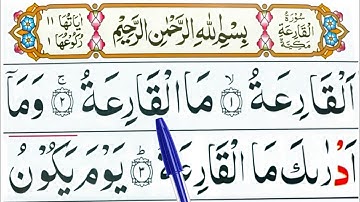 سُوْرَةُ الْقَارِعَةِ مَكِّيَّةٌ
بِسْمِ اللّٰهِ الرَّحْمٰنِ الرَّحِيْمِ
اٰيَاتُهَا ١١ رُكُوْعُهَا
اَلْقَارِعَةُ ۙ ١ مَا الْقَارِعَةُ ۚ ٢ وَمَاۤ
اَدْرٰىكَ مَا الْقَارِعَةُ ؕ ٣ يَوْمَ يَكُوْنُ